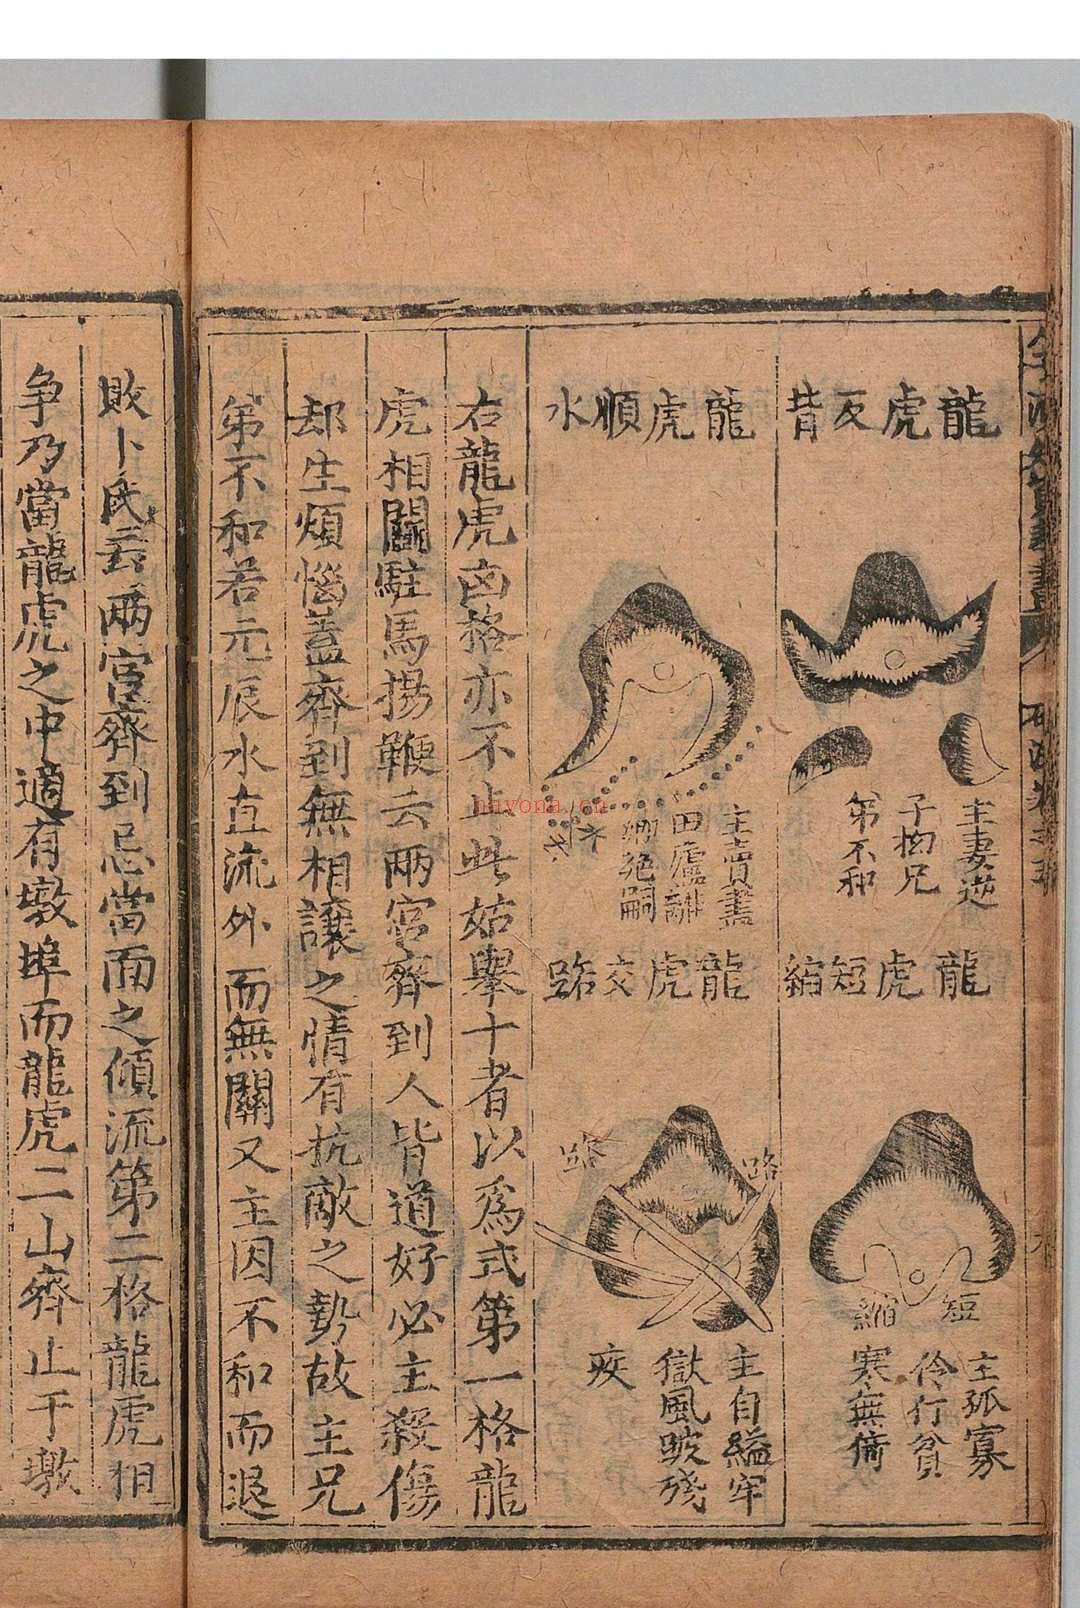 龍虎反背
主妻逆
子拗兄
弟不和
龍虎短縮
短
縮
主孤寡
伶行貧
寒無倚
龍虎順水
主賣盡
田廬
絕嗣
龍虎交路
路
路
主自縊牢
獄風跛殘
疾
右龍虎凶格亦不止此姑舉十者以爲式第一格龍
虎相鬬駐馬揚鞭云兩宮齊到人皆道好必主殺傷
却生煩惱蓋齊到無相讓之情有抗敵之勢故主兄
弟不和若元辰水直流外而無關又主因不和而退
敗卜氏云兩宮齊到忌當面之傾流第二格龍虎相
争乃當龍虎之中適有墩埠而龍虎二山齊止于墩
nayona.cn